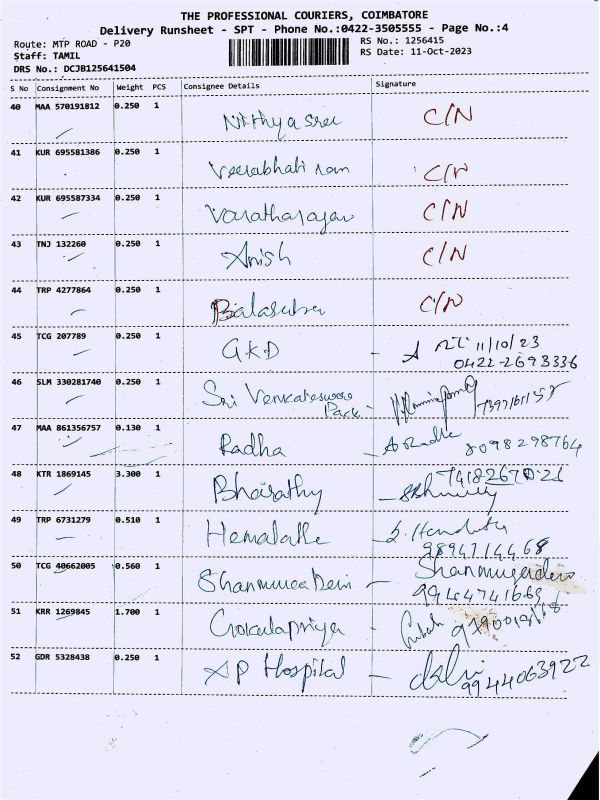 THE PROFESSIONAL COURIERS, COIMBATORE
Delivery Runsheet - SPT - Phone No.:0422-3505555 - Page No.:4
Route: MTP ROAD - P20
RS No.: 1256415
Staff: TAMIL
RS Date: 11-Oct-2023
DRS No.: DCJB125641504
S No Consignment No Weight PCS Consignee Details Signature
40 MAA 570191812 0.250 1 Nithya sree C/N
41 KUR 695581386 0.250 1 C/N
42 KUR 695587334 0.250 1 Varatharajan C/N
43 TNJ 132260 0.250 1 Anish C/N
44 TRP 4277864 0.250 1 Balasubra C/N
45 TCG 207789 0.250 1 GKD - 11/10/23
0422-2693336
46 SLM 330281740 0.250 1 Sri Venkateswara
Park -
47 MAA 861356757 0.130 1 Radha - A Radha 8098298764
48 KTR 1869145 3.300 1 Bharathy -
49 TRP 6731279 0.510 1 Hemalatha -
9894714468
50 TCG 40662005 0.560 1 Shanmuga Devi - Shanmugadevi
9944741669
51 KRR 1269845 1.700 1 Gokulapriya -
52 GDR 5328438 0.250 1 AP Hospital - 9944063922